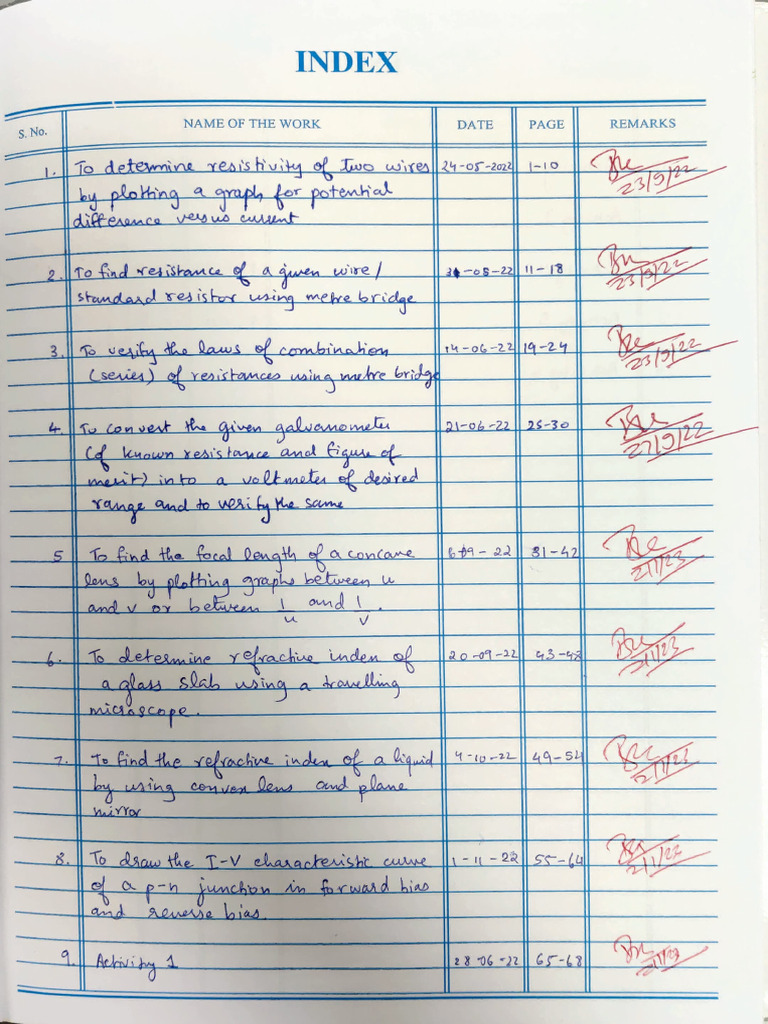 INDEX
S. No. NAME OF THE WORK DATE PAGE REMARKS
1. To determine resistivity of two wires 24-05-2022 1-10
by plotting a graph for potential 23/9/22
difference versus current
2. To find resistance of a given wire/ 31-05-22 11-18 23/9/22
standard resistor using metre bridge
3. To verify the laws of combination 14-06-22 19-24 23/9/22
(series) of resistances using metre bridge
4. To convert the given galvanometer 21-06-22 25-30 27/9/22
(of known resistance and figure of
merit) into a voltmeter of desired
range and to verify the same
5 To find the focal length of a concave 6-09-22 31-42 2/1/23
lens by plotting graphs between u
and v or between 1/u and 1/v.
6. To determine refractive index of 20-09-22 43-48 2/1/23
a glass slab using a travelling
microscope.
7. To find the refractive index of a liquid 4-10-22 49-54 2/1/23
by using convex lens and plane
mirror
8. To draw the I-V characteristic curve 1-11-22 55-64 2/1/23
of a p-n junction in forward bias
and reverse bias.
9. Activity 1 28-06-22 65-68 2/1/23